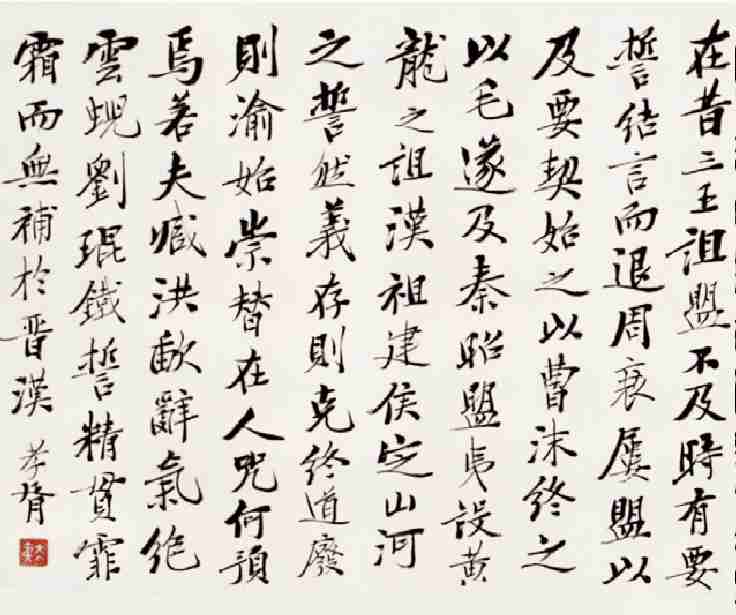 在昔三王詛盟不及時有要
誓結言而退周衰屢盟以
及要契始之以曹沫終之
以毛遂及秦昭盟夷設黄
龍之詛漢祖建侯定山河
之誓然義存則克終道廢
則渝始崇替在人咒何預
焉若夫臧洪歃辭氣絶
雲蜺劉琨鐵誓精貫霏
霜而無補於晉漢 孝胥
太夷